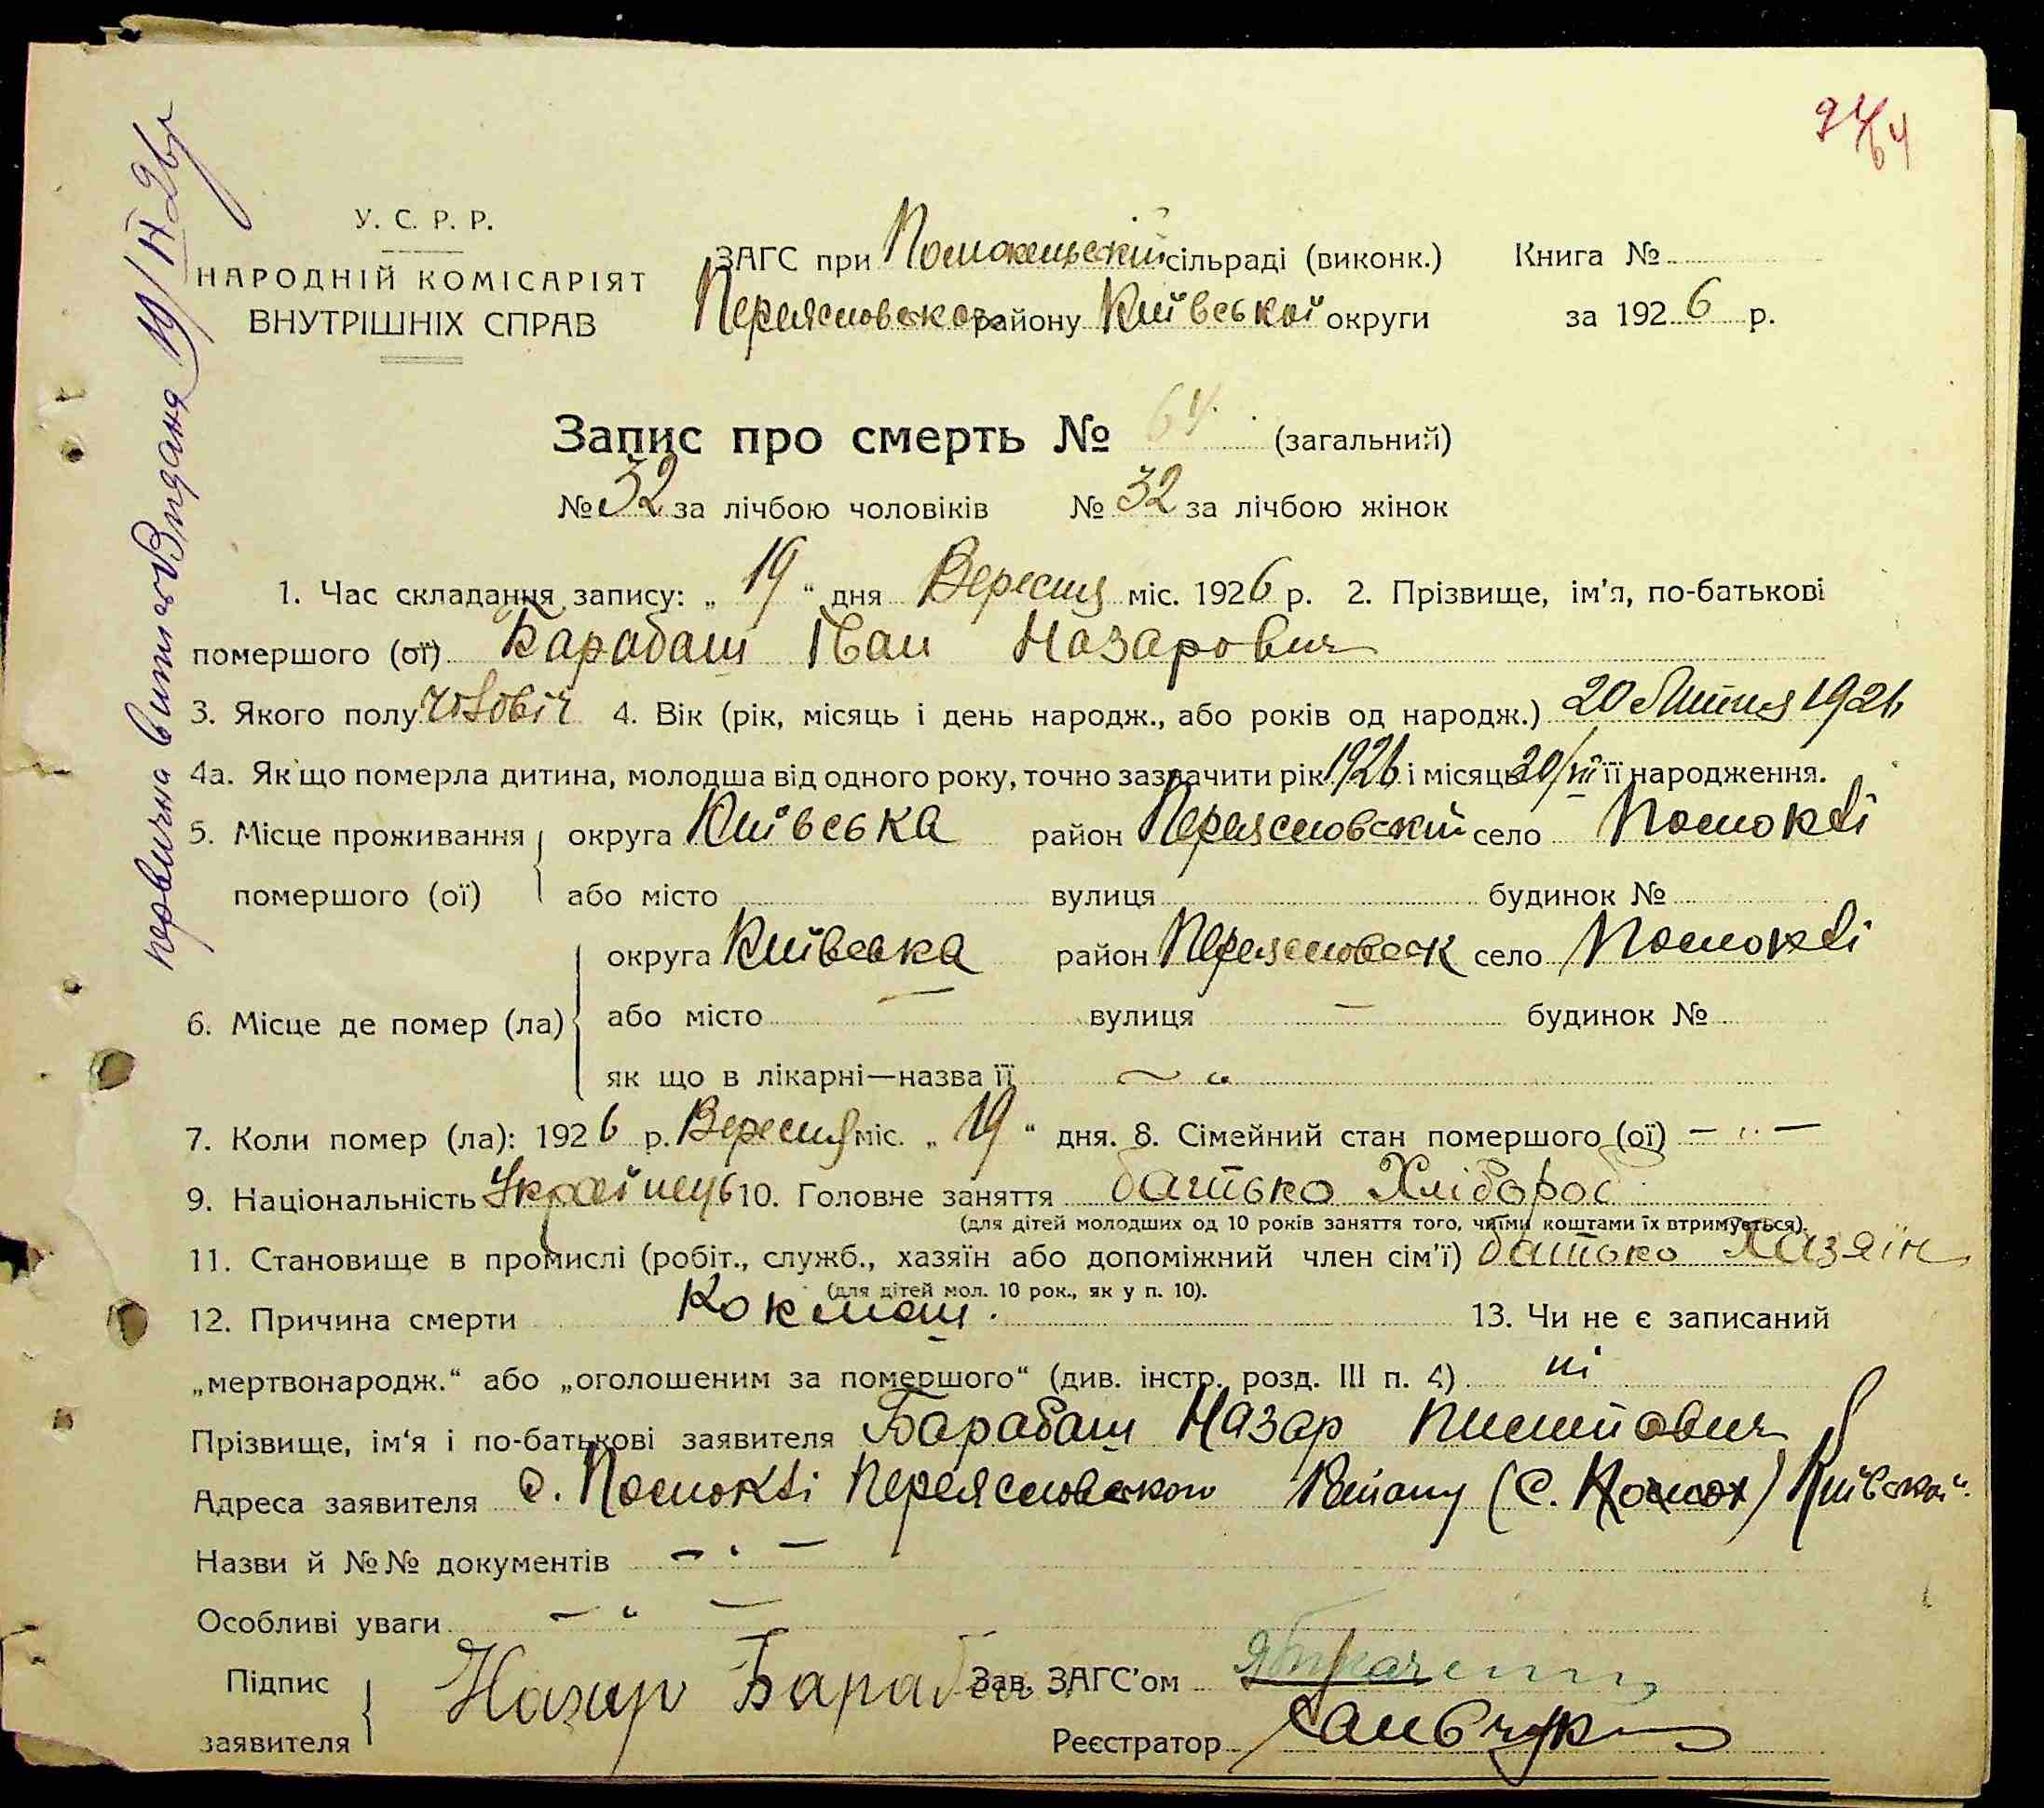 94/64
У. С. Р. Р.
НАРОДНІЙ КОМІСАРІЯТ
ВНУТРІШНІХ СПРАВ
ЗАГС при сільраді (виконк.) Книга №
Переяславсько району Київської округи за 1926 р.
Запис про смерть № 64 (загальний)
№ 32 за лічбою чоловіків № 32 за лічбою жінок
1. Час складання запису: „ 19 “ дня Вересня міс. 1926 р. 2. Прізвище, ім'я, по-батькові
помершого (ої) Барабаш Іван Назарович
3. Якого полу чоловіч 4. Вік (рік, місяць і день народж., або років од народж.) 20 Липня 1926
4а. Як що померла дитина, молодша від одного року, точно зазначити рік 1926 і місяць 20/VII її народження.
5. Місце проживання округа Київська район Переяславский село
помершого (ої) або місто вулиця будинок №
округа Київська район Переяславськ село
6. Місце де помер (ла) або місто — вулиця — будинок №
як що в лікарні—назва її
7. Коли помер (ла): 1926 р. Вересня міс. „ 19 “ дня. 8. Сімейний стан помершого (ої) — „ —
9. Національність Українець 10. Головне заняття батько Хлібороб
(для дітей молодших од 10 років заняття того, чиїми коштами їх втримується).
11. Становище в промислі (робіт., служб., хазяїн або допоміжний член сім'ї) батько Хазяїн
(для дітей мол. 10 рок., як у п. 10).
12. Причина смерти Коклюш. 13. Чи не є записаний
„мертвонародж.“ або „оголошеним за помершого“ (див. інстр. розд. III п. 4) ні
Прізвище, ім'я і по-батькові заявителя Барабаш Назар
Адреса заявителя с. Переясловського Району (С. ) Київской
Назви й №№ документів — „ —
Особливі уваги — „ —
Підпис Назар Барабаш Зав. ЗАГС'ом
заявителя Реєстратор
первична Видана 19/IX 26р